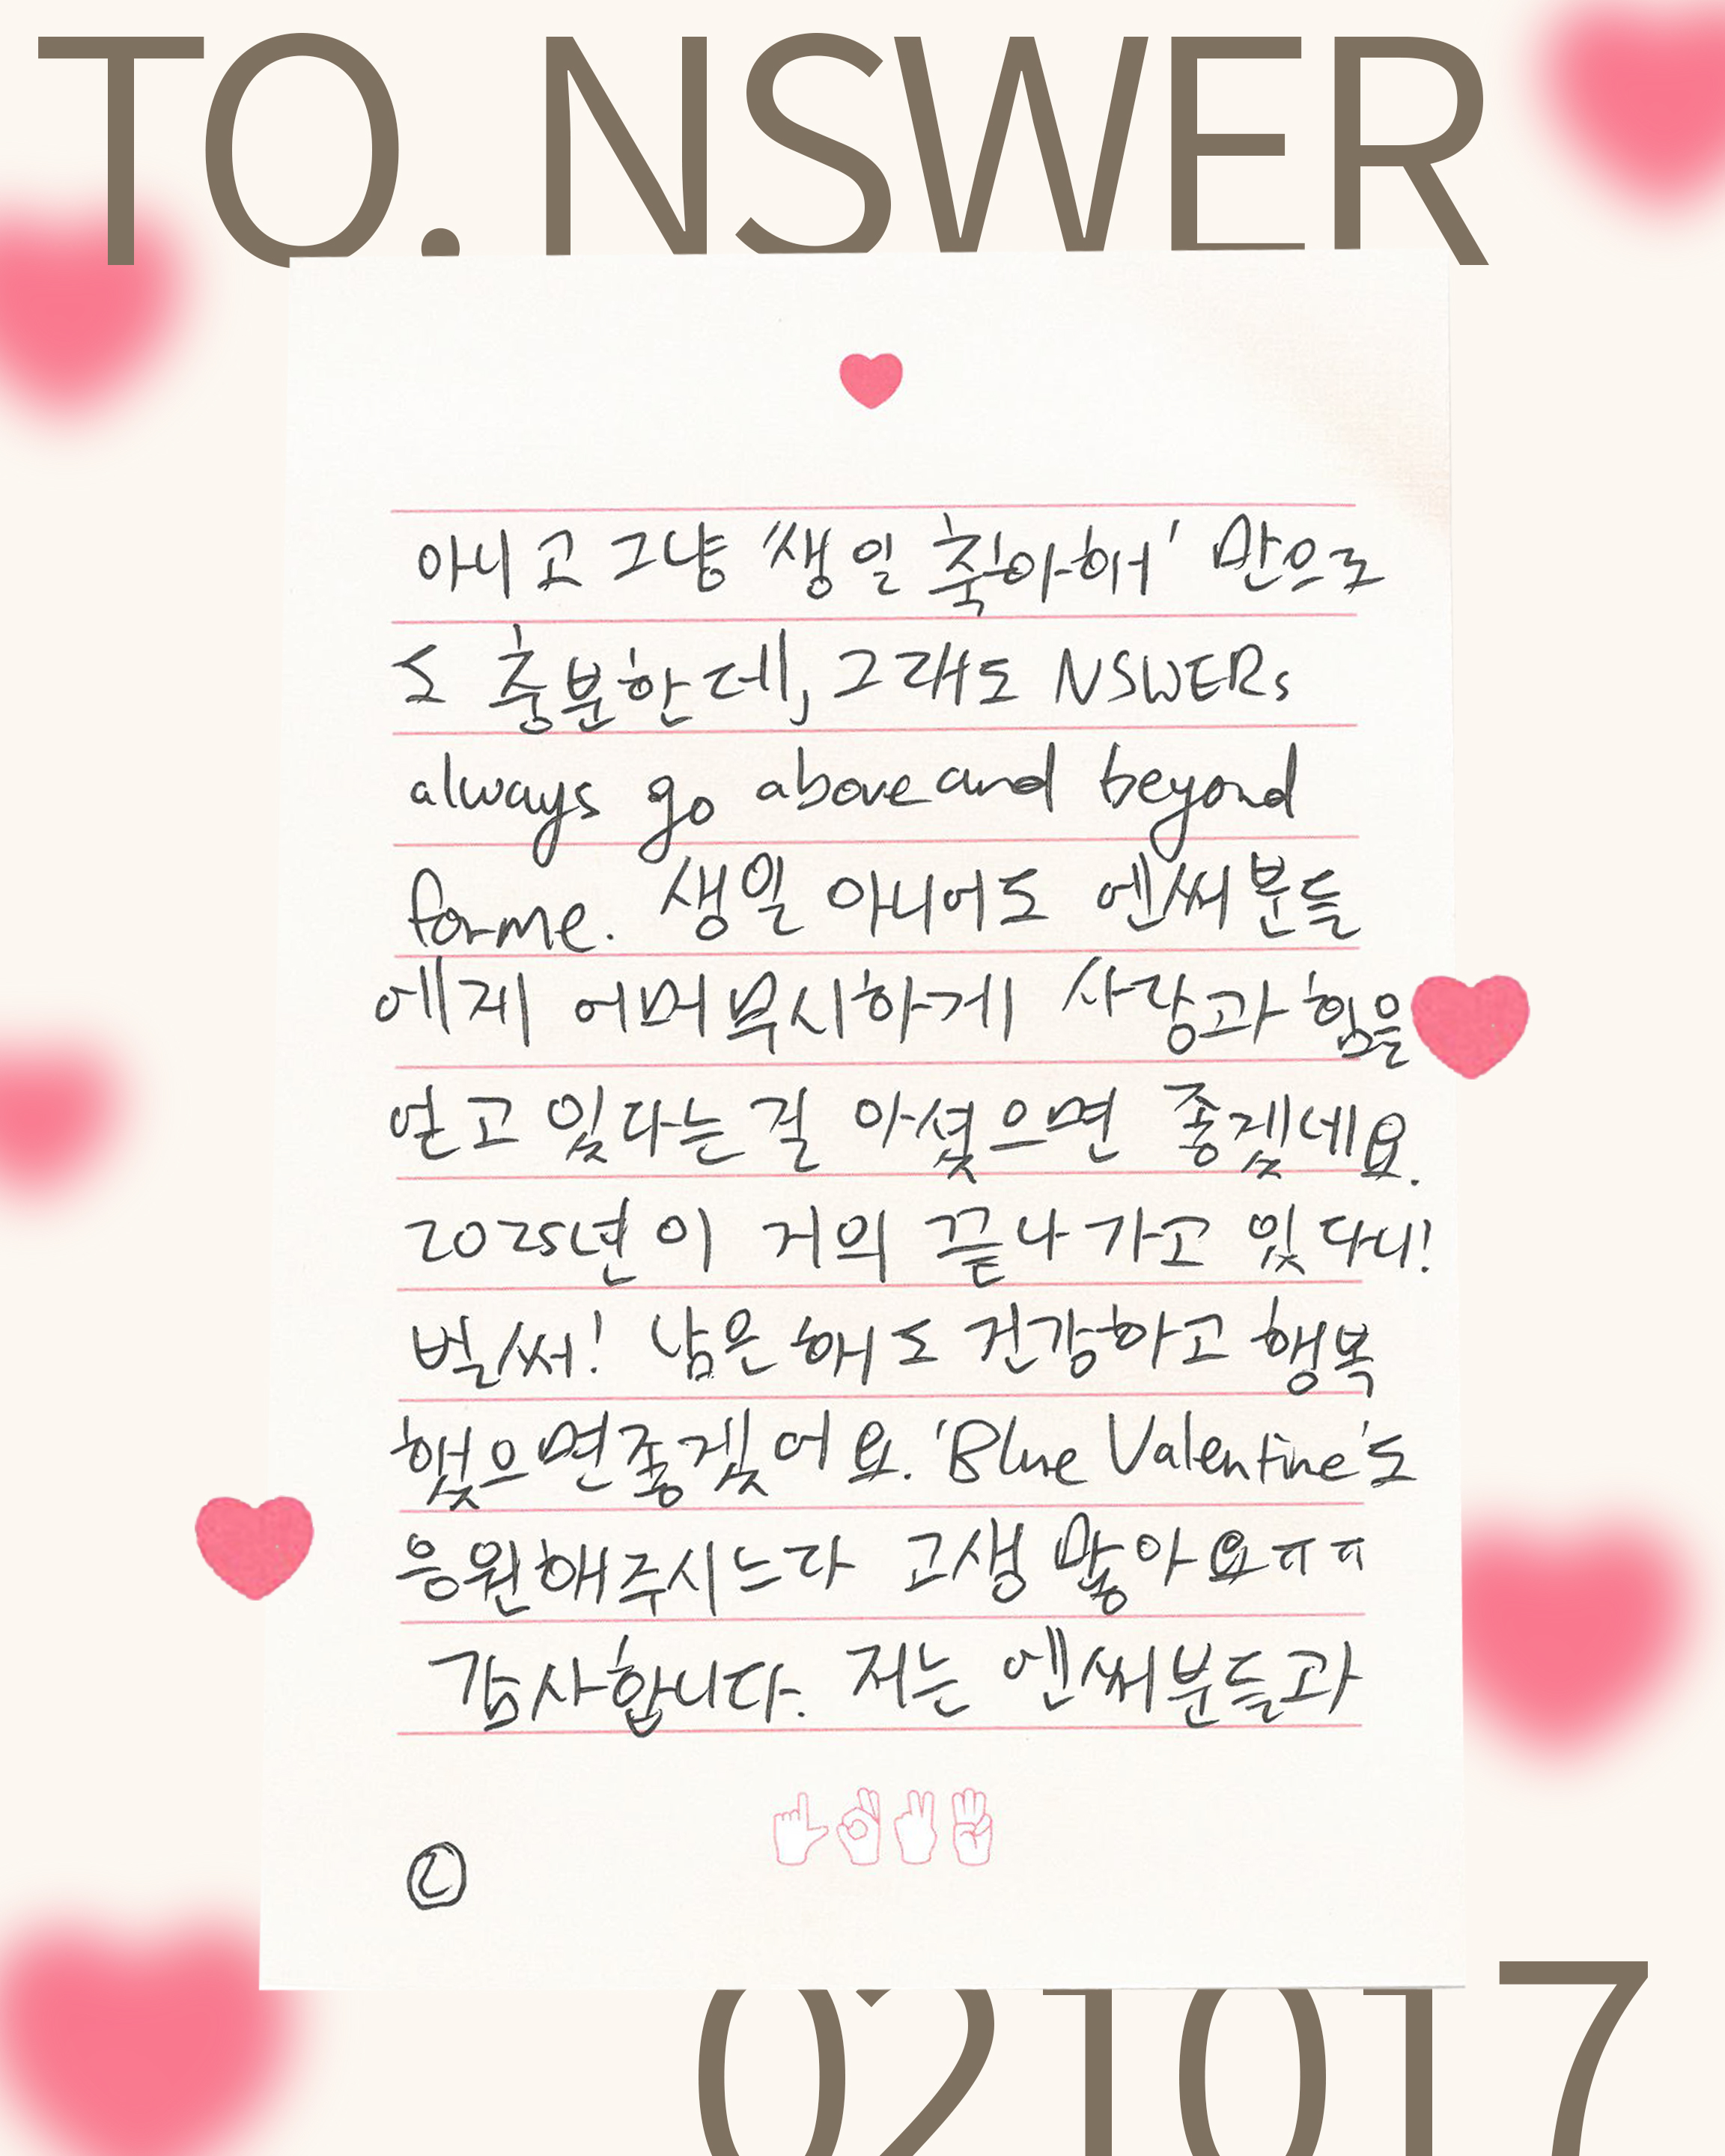 TO. NSWER
아니고 그냥 '생일 축아해' 만으로
도 충분한데, 그래도 NSWERs
always go above and beyond
for me. 생일 아니어도 엔써분들
에게 어머무시하게 사랑과 힘을
얻고 있다는 걸 아셨으면 좋겠네요.
2025년이 거의 끝나가고 있다니!
벌써! 남은 해도 건강하고 행복
했으면 좋겠어요. 'Blue Valentine'도
응원해주시느라 고생 많아요ㅠㅠ
감사합니다. 저는 엔써분들과
②
021017